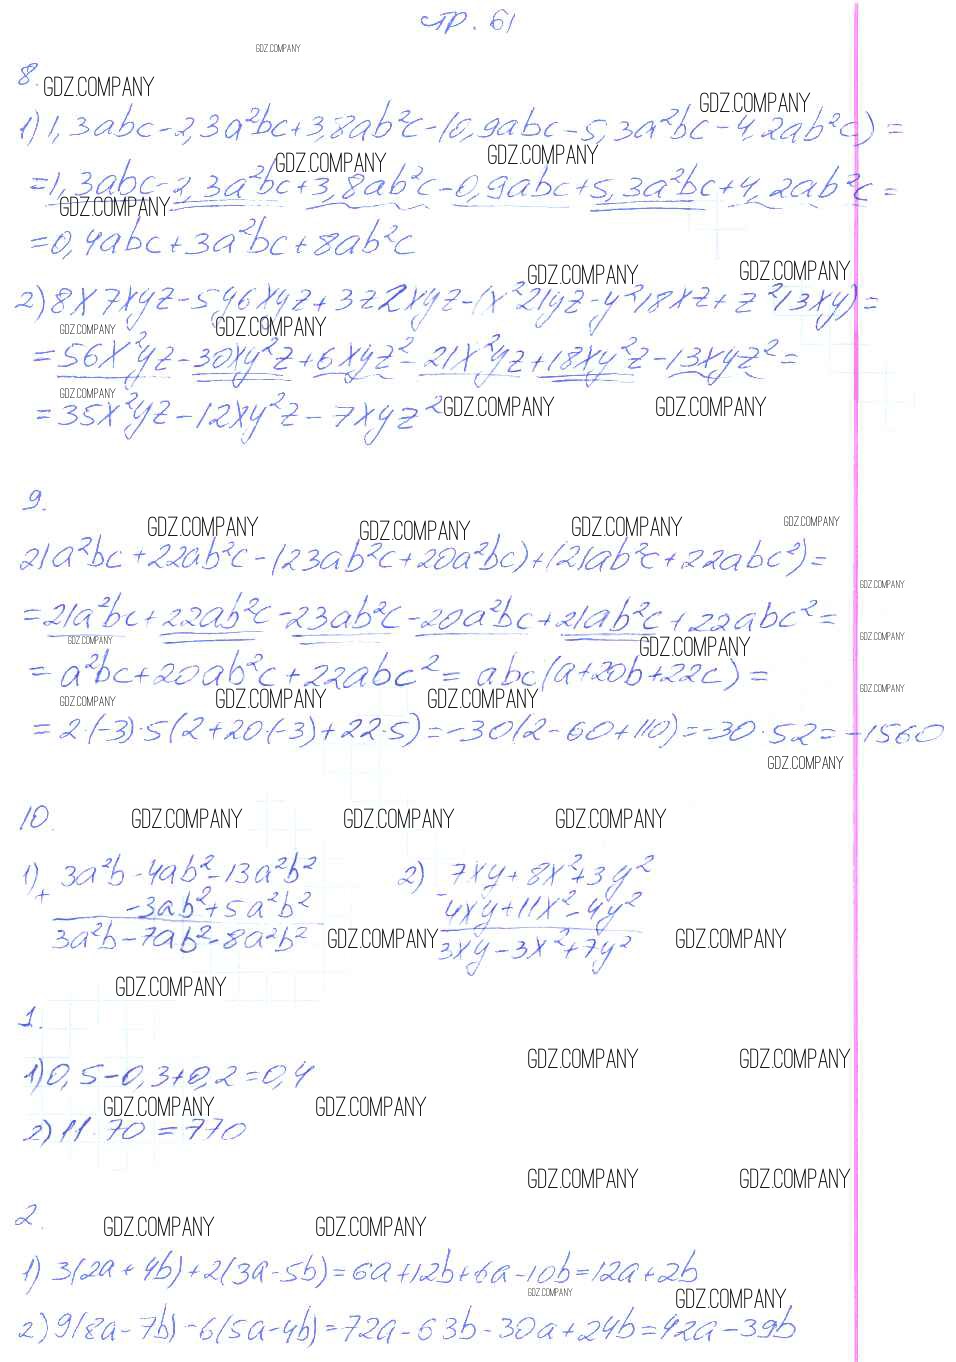 стр. 61
GDZ.COMPANY
8. GDZ.COMPANY
GDZ.COMPANY
1) 1,3abc - 2,3a²bc + 3,8ab²c - (0,9abc - 5,3a²bc - 4,2ab²c) =
GDZ.COMPANY GDZ.COMPANY
= 1,3abc - 2,3a²bc + 3,8ab²c - 0,9abc + 5,3a²bc + 4,2ab²c =
GDZ.COMPANY
= 0,4abc + 3a²bc + 8ab²c
GDZ.COMPANY GDZ.COMPANY
2) 8x7xyz - 5y6xyz + 3z2xyz - (x²21yz - y²18xz + z²13xy) =
GDZ.COMPANY GDZ.COMPANY
= 56x²yz - 30xy²z + 6xyz² - 21x²yz + 18xy²z - 13xyz² =
GDZ.COMPANY
= 35x²yz - 12xy²z - 7xyz² GDZ.COMPANY GDZ.COMPANY
9.
GDZ.COMPANY GDZ.COMPANY GDZ.COMPANY GDZ.COMPANY
21a²bc + 22ab²c - (23ab²c + 20a²bc) + (21ab²c + 22abc²) =
GDZ.COMPANY
= 21a²bc + 22ab²c - 23ab²c - 20a²bc + 21ab²c + 22abc² =
GDZ.COMPANY GDZ.COMPANY GDZ.COMPANY
= a²bc + 20ab²c + 22abc² = abc(a + 20b + 22c) =
GDZ.COMPANY GDZ.COMPANY GDZ.COMPANY GDZ.COMPANY
= 2·(-3)·5(2 + 20·(-3) + 22·5) = -30(2 - 60 + 110) = -30·52 = -1560
GDZ.COMPANY
10. GDZ.COMPANY GDZ.COMPANY GDZ.COMPANY
1) 3a²b - 4ab² - 13a²b² 2) 7xy + 8x² + 3y²
+ - 3ab² + 5a²b² - 4xy + 11x² - 4y²
3a²b - 7ab² - 8a²b² GDZ.COMPANY 3xy - 3x² + 7y² GDZ.COMPANY
GDZ.COMPANY
1.
GDZ.COMPANY GDZ.COMPANY
1) 0,5 - 0,3 + 0,2 = 0,4
GDZ.COMPANY GDZ.COMPANY
2) 11·70 = 770
GDZ.COMPANY GDZ.COMPANY
2. GDZ.COMPANY GDZ.COMPANY
1) 3(2a + 4b) + 2(3a - 5b) = 6a + 12b + 6a - 10b = 12a + 2b
GDZ.COMPANY GDZ.COMPANY
2) 9(8a - 7b) - 6(5a - 4b) = 72a - 63b - 30a + 24b = 42a - 39b